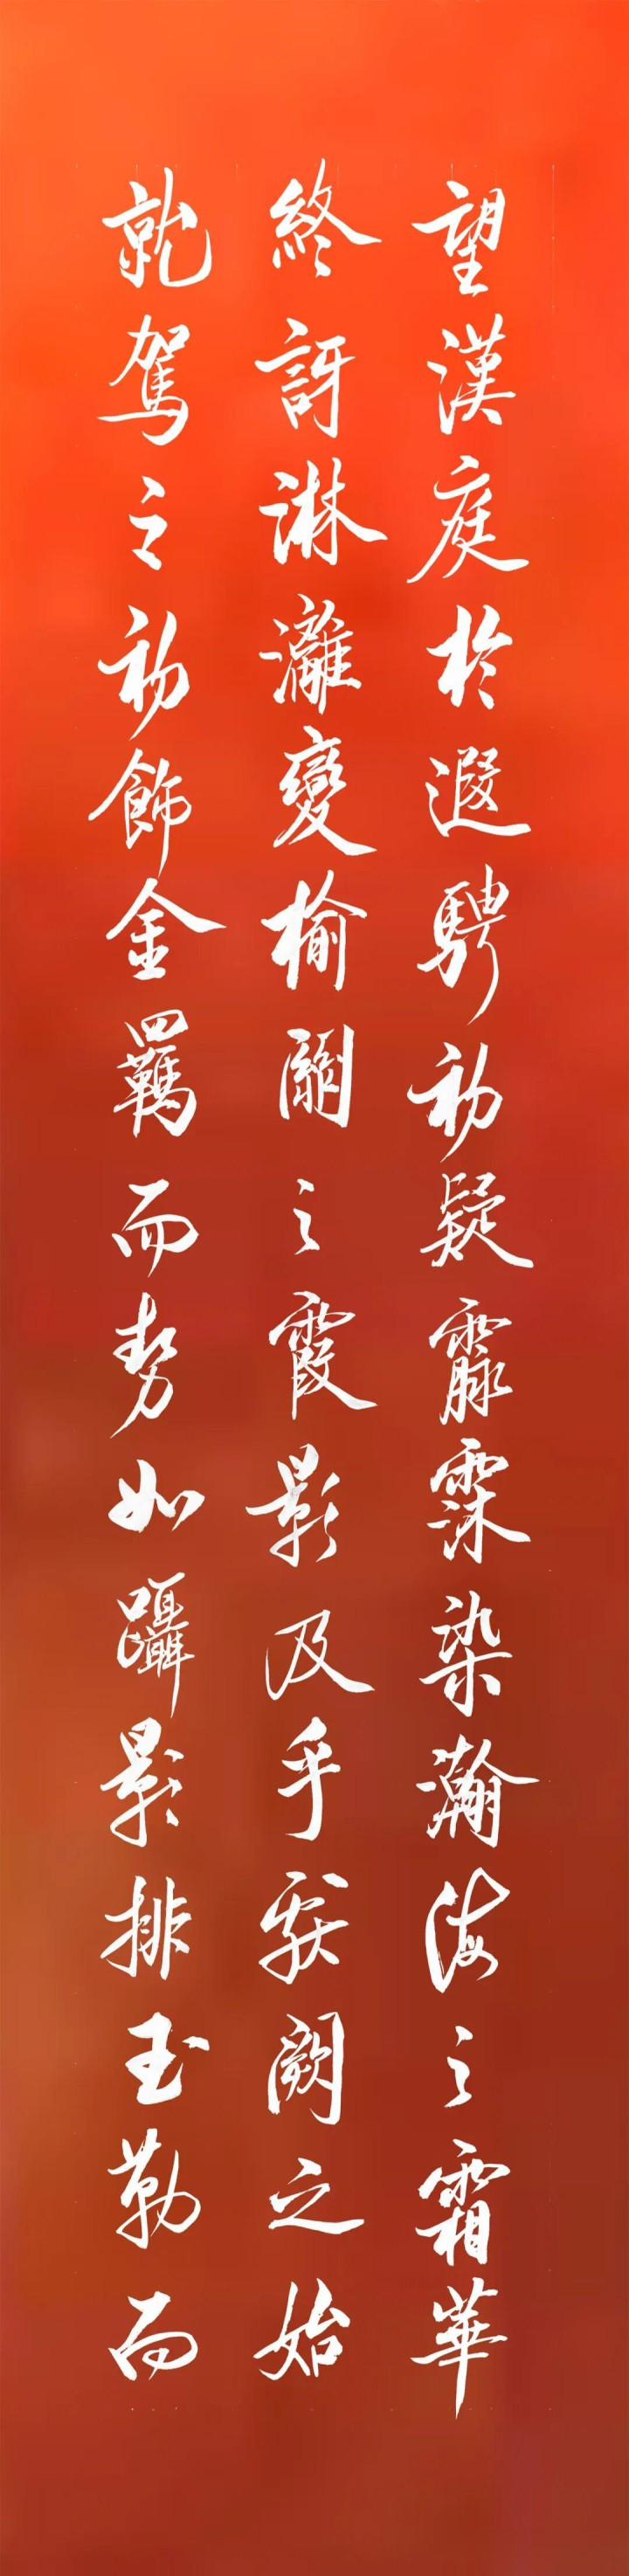 望漢庭於遐騁初疑霢霂染瀚海之霜華
終訝淋灕變榆關之霞影及乎獻闕之始
就駕之初飾金羈而勢如躡景排玉勒而